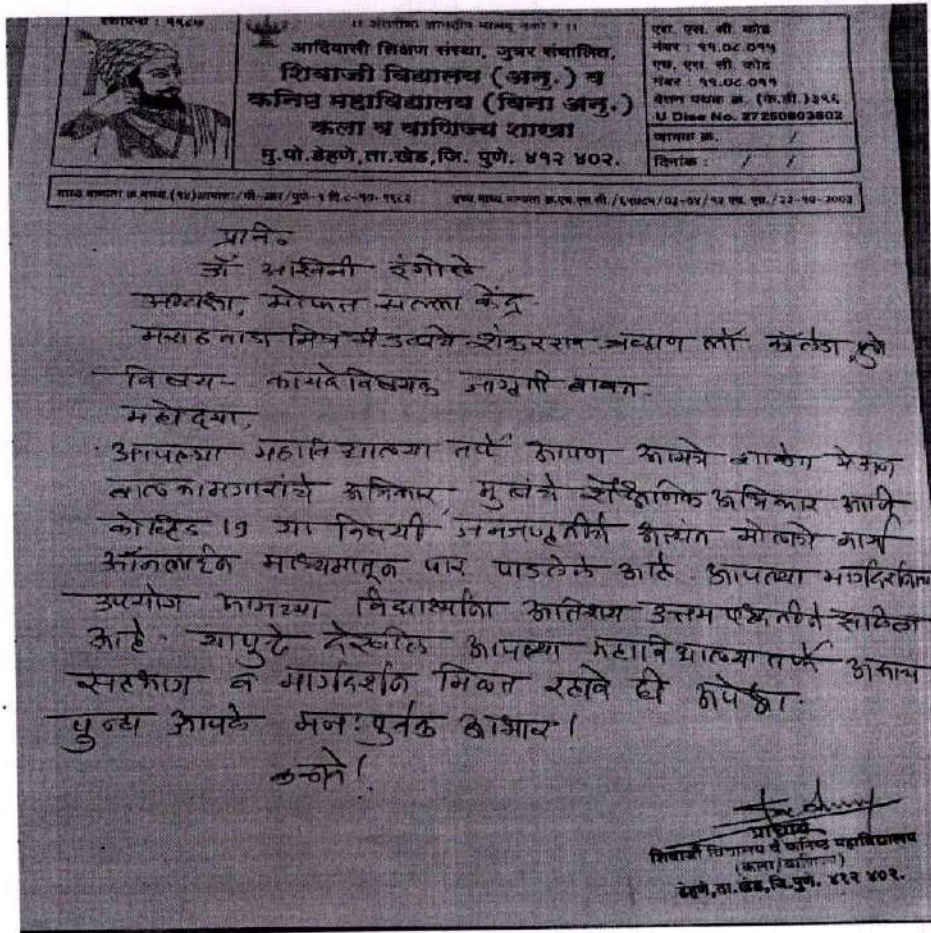 स्थापना : १९८७
।। अंतरीचा ज्ञानदीप मालवू नको रे ।।
आदिवासी शिक्षण संस्था, जुन्नर संचालित,
शिवाजी विद्यालय (अनु.) व
कनिष्ठ महाविद्यालय (विना अनु.)
कला व वाणिज्य शाखा
मु.पो.डेहणे,ता.खेड,जि. पुणे. ४१२ ४०२.
एस. एस. सी. कोड
नंबर : ११.०८.०१५
एच. एस. सी. कोड
नंबर : ११.०८.०११
वेतन पथक क्र. (के.डी.)३९६
U Dise No. 27250803802
जावक क्र. /
दिनांक : / /
प्रति,
डॉ अश्विनी इंगोले
मोफत सल्ला केंद्र
शंकरराव चव्हाण लॉ कॉलेज पुणे
विषय - कायदेविषयक जागृती बाबत.
महोदया,
आपल्या महाविद्यालया तर्फे आपण आमचे शाळेत येऊन
बालकामगारांचे अधिकार, मुलांचे शैक्षणिक अधिकार आणि
कोव्हिड 19 या विषयी जनजागृतीचे अत्यंत मोलाचे कार्य
ऑनलाईन माध्यमातून पार पाडलेले आहे. आपल्या मार्गदर्शनाचा
उपयोग आमच्या विद्यार्थ्यांना अतिशय उत्तम पद्धतीने झालेला
आहे. यापुढे देखील आपल्या महाविद्यालया तर्फे असाच
सहभाग व मार्गदर्शन मिळत रहावे ही अपेक्षा.
पुन्हा आपले मनःपुर्वक आभार!
कळावे!
प्राचार्य
शिवाजी विद्यालय व कनिष्ठ महाविद्यालय
(कला/वाणिज्य)
डेहणे,ता.खेड,जि.पुणे. ४१२ ४०२.